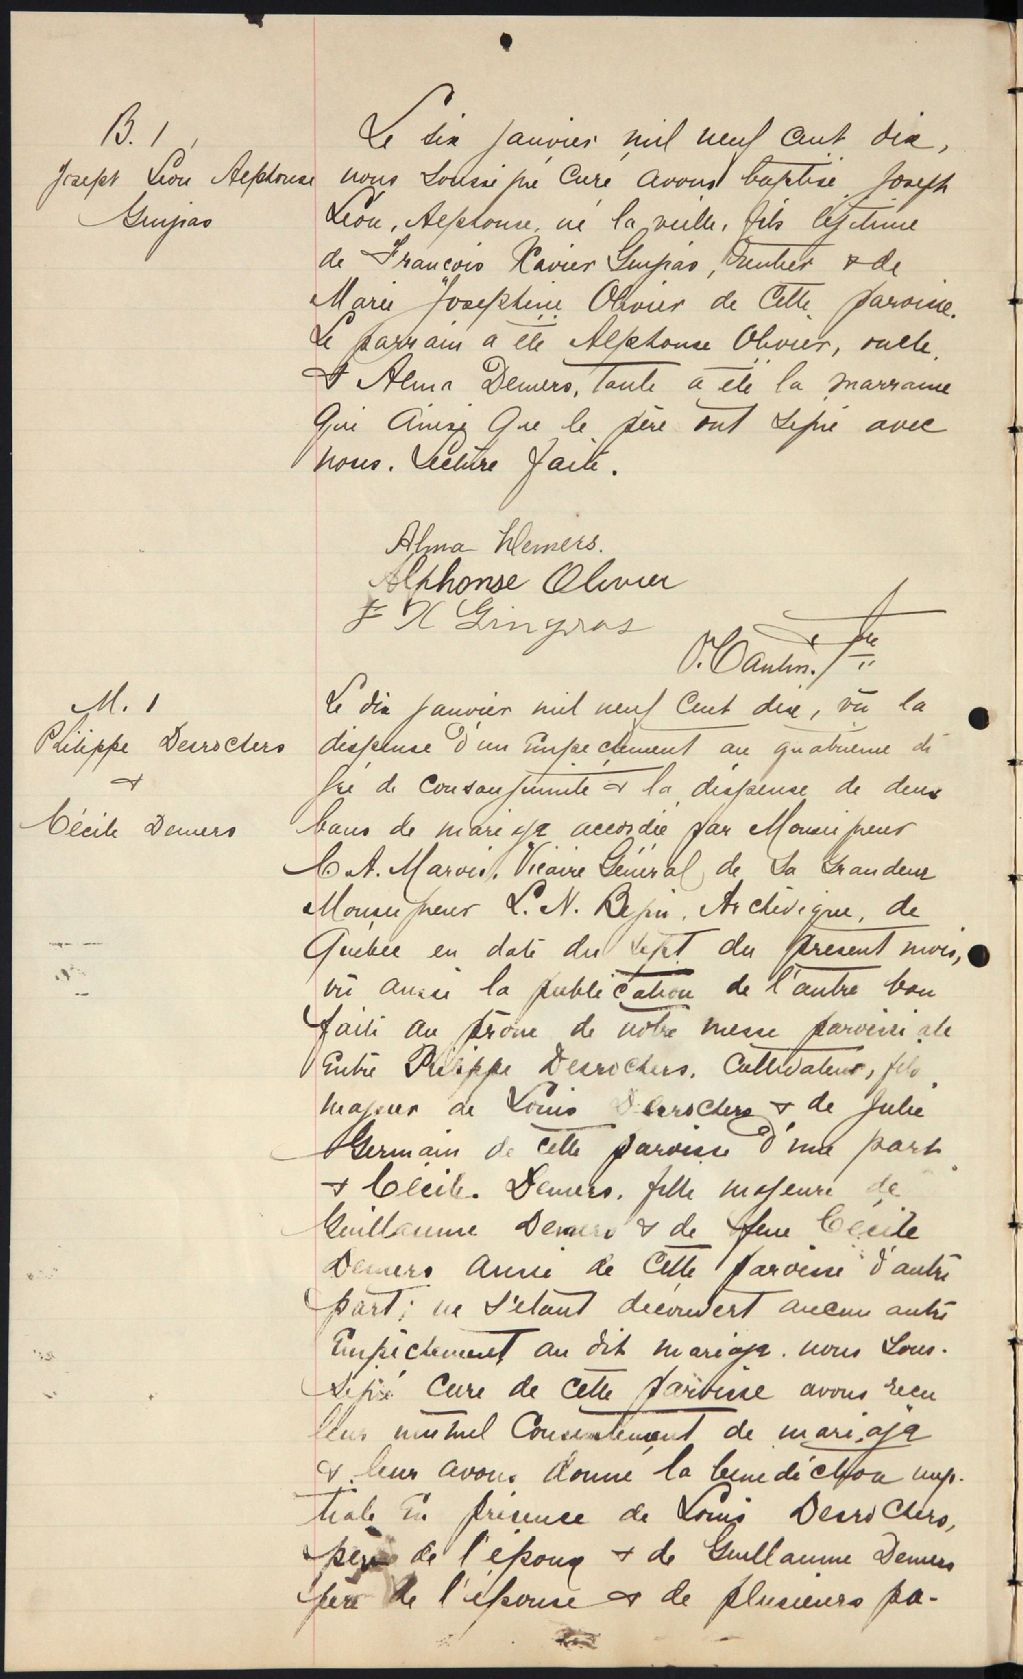 B. 1
Joseph Léon Alphonse
Gingras
Le six janvier mil neuf cent dix,
nous soussigné curé avons baptisé Joseph
Léon, Alphonse, né la veille, fils légitime
de François Xavier Gingras, rentier & de
Marie Joséphine Olivier de cette paroisse.
Le parrain a été Alphonse Olivier, oncle,
& Alma Demers, tante a été la marraine
qui ainsi que le père ont signé avec
nous. Lecture faite.
Alma Demers.
Alphonse Olivier
F X Gingras
Ptre
M. 1
Philippe Desrochers
&
Cécile Demers
Le dix janvier mil neuf cent dix, vû la
dispense d'un empêchement au quatrième dé
gré de consanguinité & la dispense de deux
bans de mariage accordée par Monseigneur
C. A. Marois, Vicaire Général de Sa Grandeur
Monseigneur L. N. Bégin, Archevêque, de
Québec en date du sept du présent mois,
vû aussi la publication de l'autre ban
faite au prône de notre messe paroissiale
entre Philippe Desrochers, cultivateur, fils
majeur de Louis Desrochers & de Julie
Germain de cette paroisse d'une part
& Cécile Demers, fille majeure de
Guillaume Demers & de feue Cécile
Demers aussi de cette paroisse d'autre
part; ne s'étant découvert aucun autre
empêchement au dit mariage nous sous-
signé curé de cette paroisse avons reçu
leur mutuel consentement de mariage
& leur avons donné la bénédiction nup-
tiale en présence de Louis Desrochers,
père de l'époux & de Guillaume Demers
père de l'épouse & de plusieurs pa-